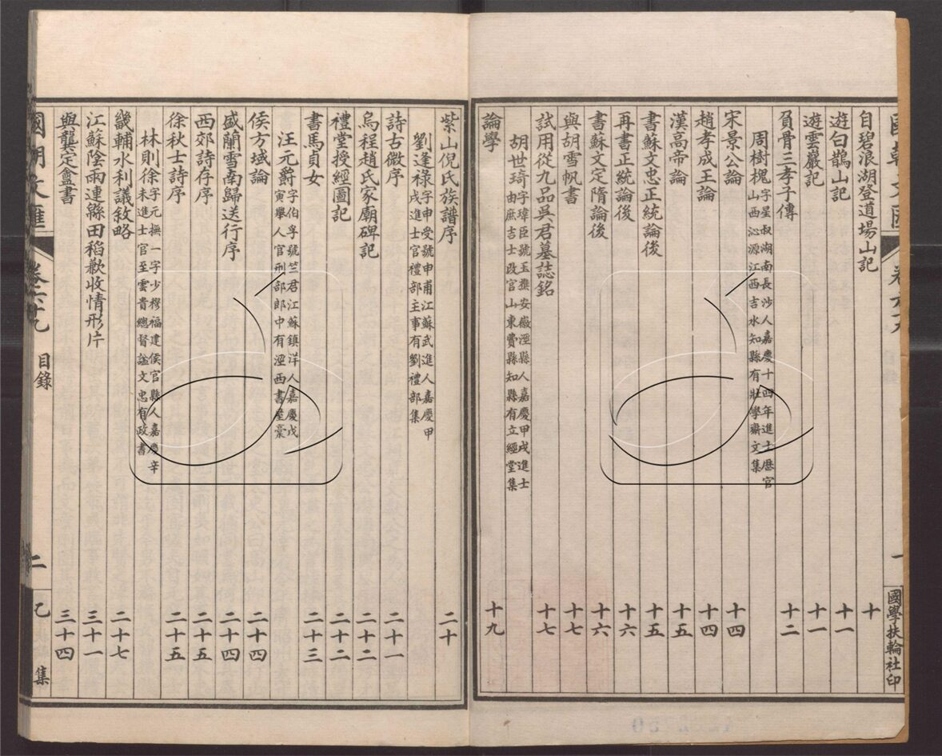 國朝文匯
卷六十九
一
國學扶輪社印
自碧浪湖登道場山記
十
遊白鵲山記
十一
遊雲巖記
十一
負骨三孝子傳
十二
周樹槐字星叔湖南長沙人嘉慶十四年進士歷官
山西沁源江西吉水知縣有壯學齋文集
宋景公論
十四
趙孝成王論
十四
漢高帝論
十五
書蘇文忠正統論後
十五
再書正統論後
十六
書蘇文定隋論後
十六
與胡雪帆書
十七
試用從九品吳君墓誌銘
十七
胡世琦字瑋臣號玉鑱安徽涇縣人嘉慶甲戌進士
由庶吉士改官山東費縣知縣有立經堂集
論學
十九
紫山倪氏族譜序
二十
劉逢祿字申受號申甫江蘇武進人嘉慶甲
戌進士官禮部主事有劉禮部集
詩古微序
二十一
烏程趙氏家廟碑記
二十二
禮堂授經圖記
二十二
書馬貞女
二十三
汪元爵字伯孚號竺君江蘇鎮洋人嘉慶戊
寅舉人官刑部郎中有涇西書屋稾
侯方域論
二十四
盛蘭雪南歸送行序
二十四
西郊詩存序
二十五
徐秋士詩序
二十五
林則徐字元撫一字少穆福建侯官縣人嘉慶辛
未進士官至雲貴總督諡文忠有政書
畿輔水利議敘略
二十七
江蘇陰雨連緜田稻歉收情形片
三十一
與龔定盦書
三十四
國朝文匯
卷六十九
目錄
二
乙
集